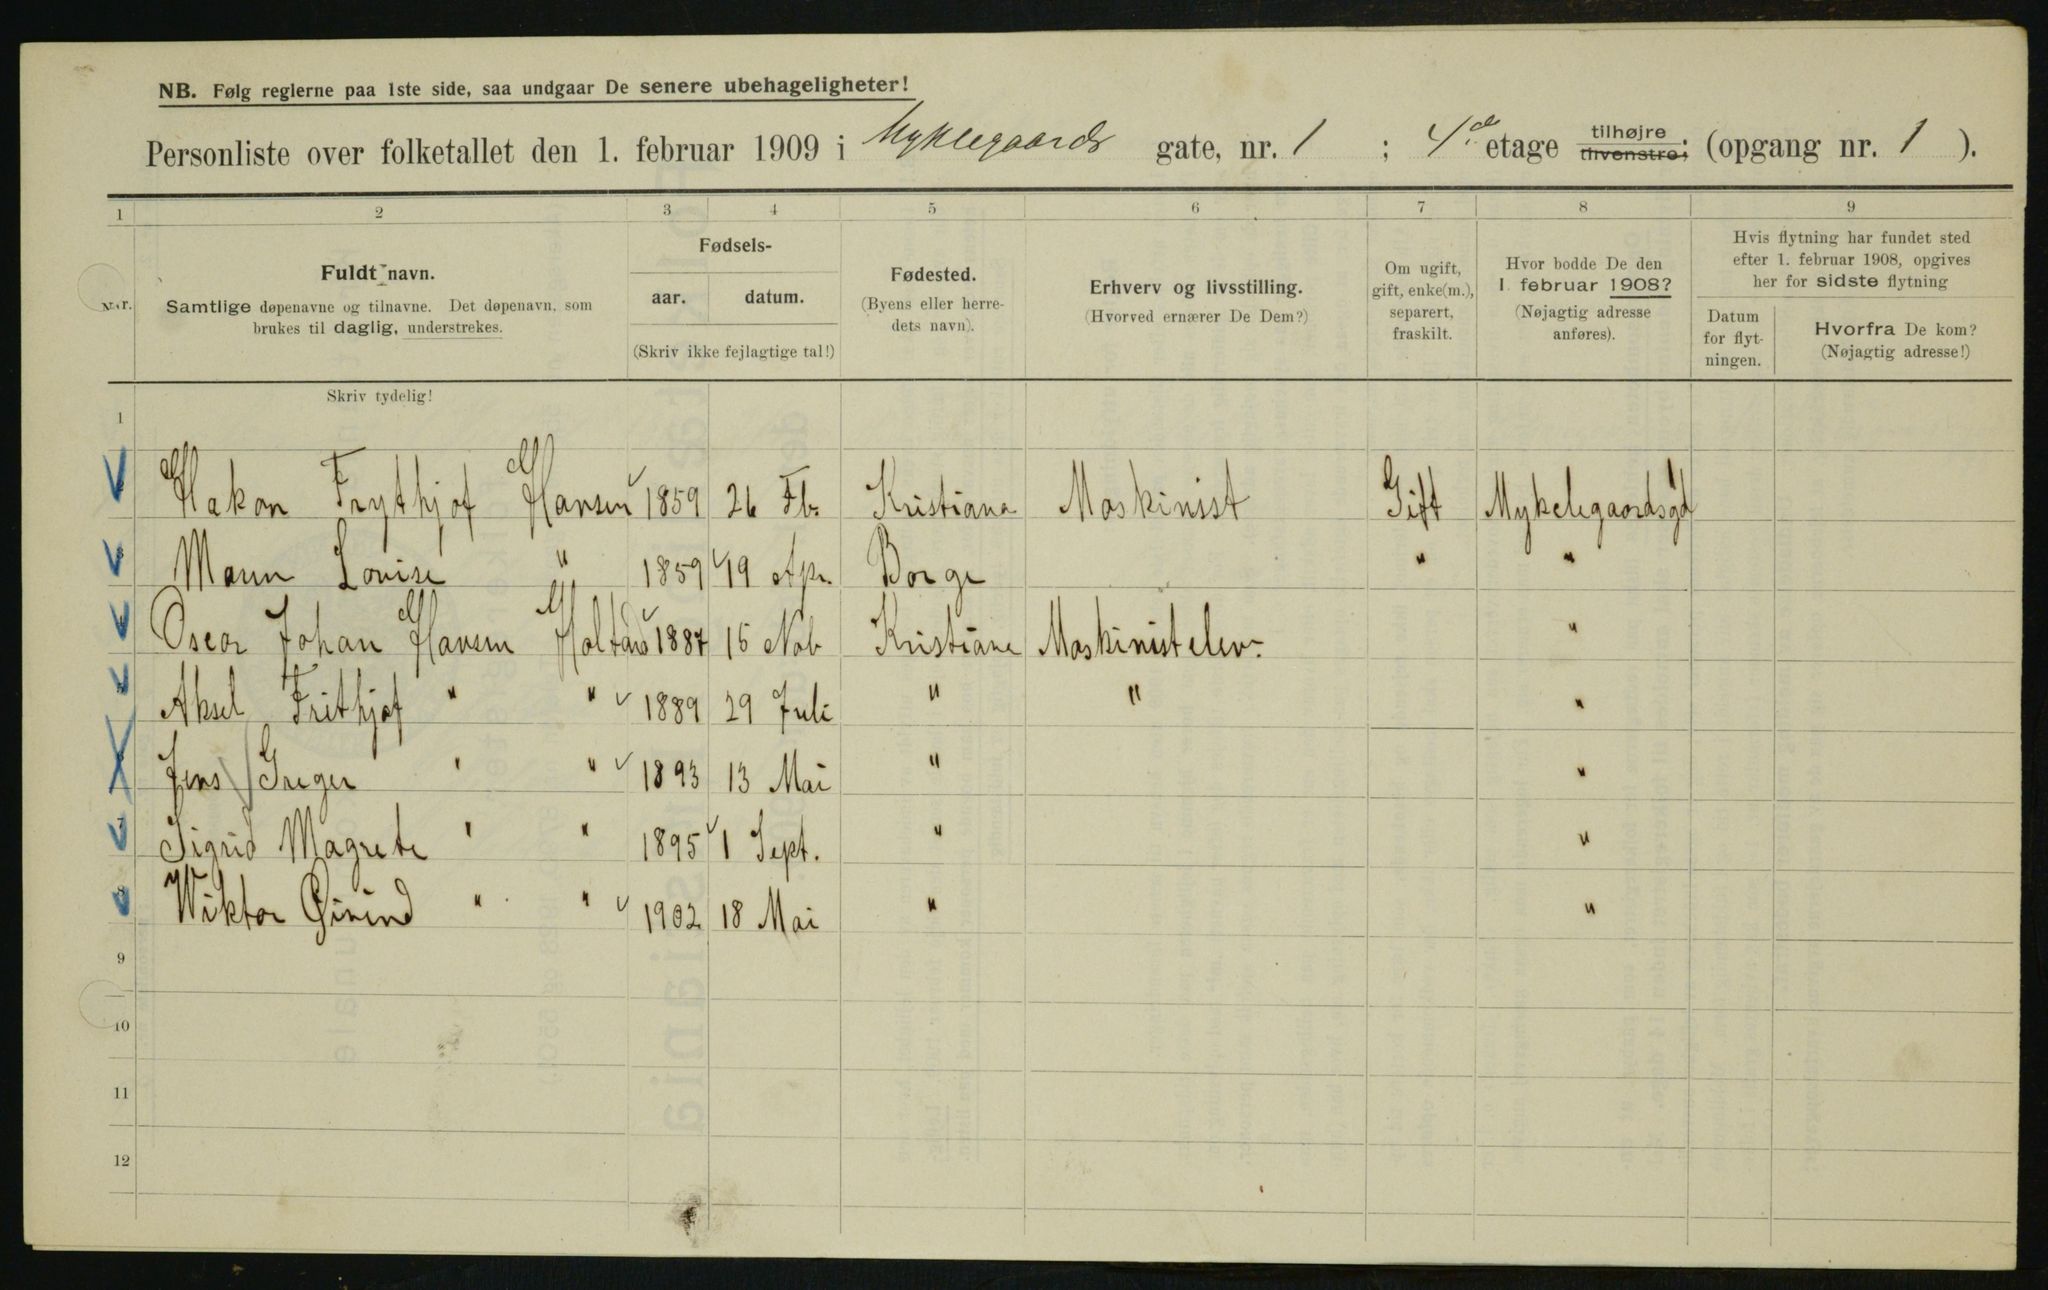 NB. Følg reglerne paa 1ste side, saa undgaar De senere ubehageligheter!
Personliste over folketallet den 1. februar 1909 i Myklegaards gate, nr. 1 ; 4d etage tilhøjre tilvenstre; (opgang nr. 1 ).
1 2 3 4 5 6 7 8 9
Nr. Fuldt navn. Samtlige døpenavne og tilnavne. Det døpenavn, som brukes til daglig, understrekes.
Fødsels- aar. datum. (Skriv ikke fejlagtige tal!)
Fødested. (Byens eller herredets navn).
Erhverv og livsstilling. (Hvorved ernærer De Dem?)
Om ugift, gift, enke(m.), separert, fraskilt.
Hvor bodde De den 1. februar 1908? (Nøjagtig adresse anføres).
Hvis flytning har fundet sted efter 1. februar 1908, opgives her for sidste flytning
Datum for flytningen.
Hvorfra De kom? (Nøjagtig adresse!)
Skriv tydelig!
1
Hakon Frythjof Hansen 1859 26 Fb. Kristiana Maskinist Gift Mykelegaardsgd 1
3 Louise " 1859 19 Apr. Borge " "
Oscar Johan Hansen Holtand 1887 15 Nob Kristiana Maskinist elev. "
Aksel Frithjof " " 1889 29 Juli " " "
Jens Greger " " 1893 13 Mai " "
7 Sigrid Magrete " " 1895 1 Sept. " "
8 Wiktor Øivind " " 1902 18 Mai " "
9
10
11
12